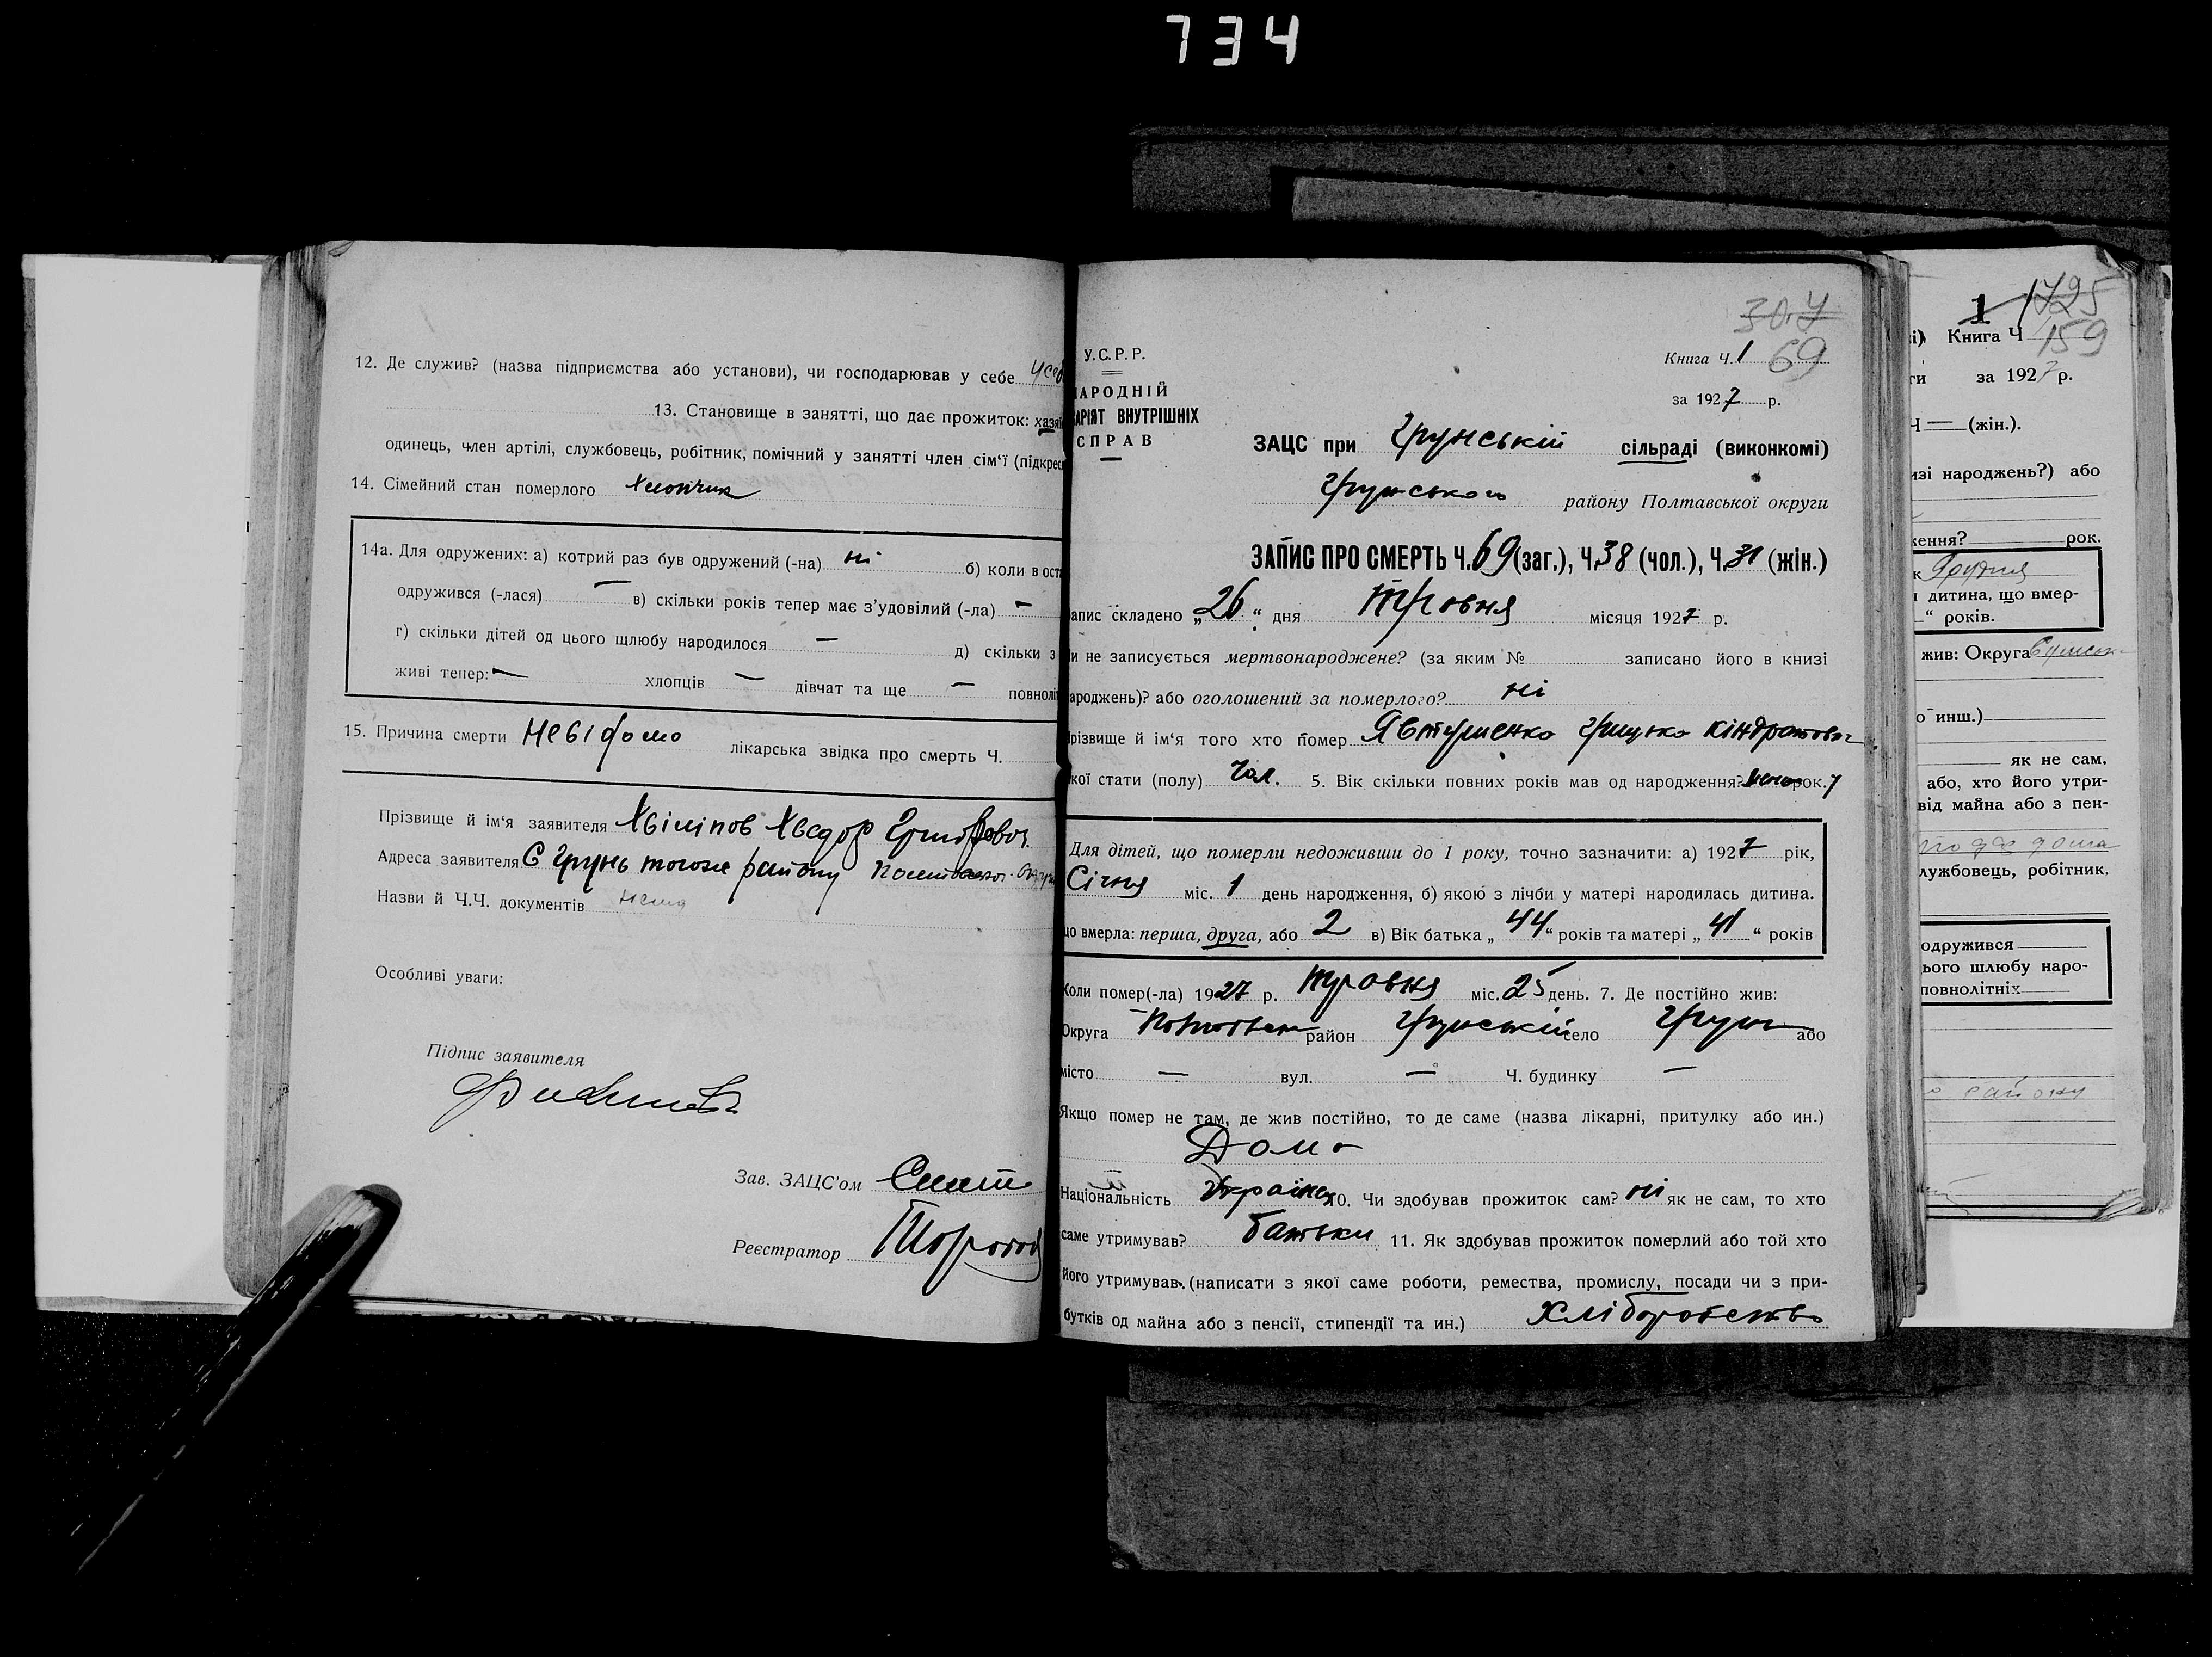 734
12. Де служив? (назва підприємства або установи), чи господарював у себе усеб
13. Становище в занятті, що дає прожиток: хазяї
одинець, член артілі, службовець, робітник, помічний у занятті член сім'ї (підкрес
14. Сімейний стан померлого Хлопчик
14а. Для одружених: а) котрий раз був одружений (-на) ні б) коли в ост
одружився (-лася) — в) скільки років тепер має з'удовілий (-ла) —
г) скільки дітей од цього шлюбу народилося — д) скільки з
живі тепер: — хлопців — дівчат та ще — повноліт
15. Причина смерти Невідомо лікарська звідка про смерть Ч.
Прізвище й ім'я заявителя Хвіліпов Хведор
Адреса заявителя С Грунь тогож району
Назви й Ч.Ч. документів нема
Особливі уваги:
Підпис заявителя
Зав. ЗАЦС'ом
Реєстратор
307
У.С.Р.Р.
Книга Ч. 1 69
НАРОДНІЙ
АРІЯТ ВНУТРІШНІХ
СПРАВ
за 1927 р.
ЗАЦС при Грунській сільраді (виконкомі)
Грунського району Полтавської округи
ЗАПИС ПРО СМЕРТЬ Ч. 69 (заг.), Ч. 38 (чол.), Ч. 31 (жін.)
апис складено „26" дня Травня місяця 1927 р.
и не записується мертвонароджене? (за яким № записано його в книзі
ароджень)? або оголошений за померлого? ні
різвище й ім'я того хто помер Явтушенко Грицько Кіндратович
кої стати (полу) Чол. 5. Вік скільки повних років мав од народження? рок.
Для дітей, що померли недоживши до 1 року, точно зазначити: а) 1927 рік,
Січня міс. 1 день народження, б) якою з лічби у матері народилась дитина.
що вмерла: перша, друга, або 2 в) Вік батька „44" років та матері „41" років
Коли помер(-ла) 1927 р. Травня міс. 25 день. 7. Де постійно жив:
Округа район Грунській село Грунь або
місто — вул. — Ч. будинку —
Якщо помер не там, де жив постійно, то де саме (назва лікарні, притулку або ин.)
Дома
Національність Українец 10. Чи здобував прожиток сам? ні як не сам, то хто
саме утримував? батьки 11. Як здобував прожиток померлий або той хто
його утримував. (написати з якої саме роботи, ремества, промислу, посади чи з при-
бутків од майна або з пенсії, стипендії та ин.) Хліборобство
1 1725
і) Книга Ч 159
ги за 1927 р.
Ч — (жін.).
изі народжень?) або
ження? рок.
к Грудня
дитина, що вмер-
“ років.
жив: Округа Сумськ
о инш.)
як не сам,
або, хто його утри-
від майна або з пен-
лужбовець, робітник,
одружився
ього шлюбу наро-
повнолітніх
району